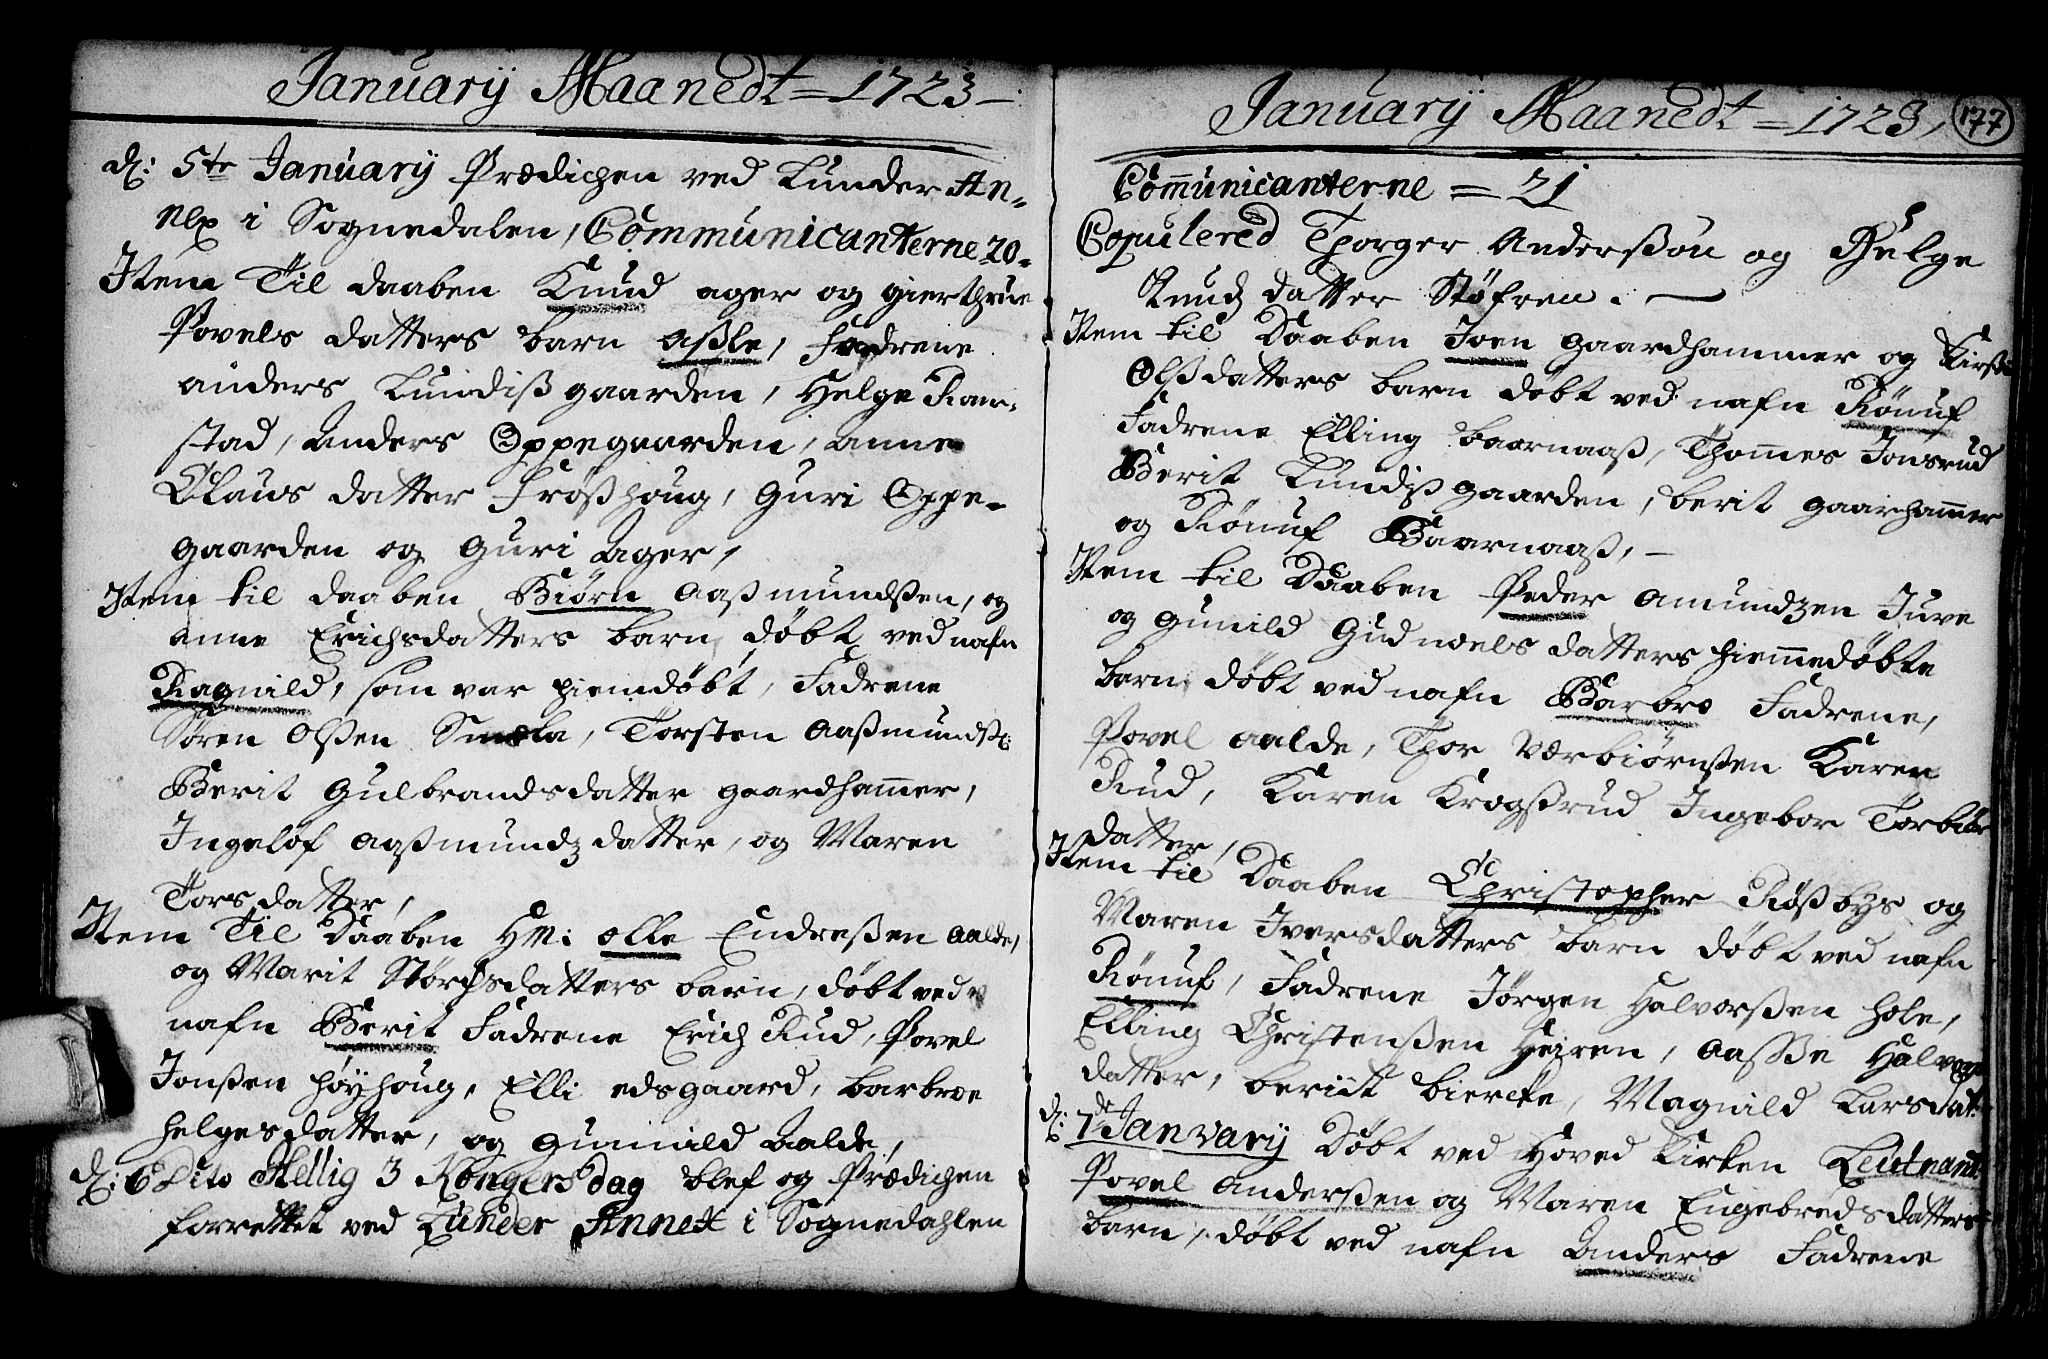 Januarÿ Maanedt = 1723 -
d: 5te Januarÿ Prædichen ved Lunder An-
nex i Sognedalen, Communicanterne 20.
Item Til daaben Knud ager og gierthrue
Povels datters barn aßle, Fadrene
anders Lundißgaarden, Helge Ram-
stad, Anders Oppegaarden, anne
Claus datter Frøßhoug, Guri Oppe-
gaarden og Guri Ager,
Item til daaben Biørn Aaßmundßen, og
anne Erichsdatters barn, døbt ved nafn
Ragnild, som var hiemdøbt, Fadrene
Søren olßen Smæla, Torsten Aaßmundß:
Berit Gulbrandsdatter gaardhamer,
Ingelof Aaßmundz datter, og Maren
Torsdatter,
Item Til Daaben olle Endreßen Aalde,
og Marit Størchsdatters barn, døbt ved
nafn Berit Fadrene Erich Rud, Povel
Jonßen høyhoug, Elli edsgaard, barbroe
helgesdatter, og gunnild Aalde,
d: 6 Dito Hellig 3 Kongers dag blef og Prædichen
forrettet ved Lunder Annex i Sognedahlen
Januarÿ Maanedt = 1723, 177
Communicanterne = 21
Copulered Thorger Anderßøn og Helge
Knudz datter Støfren. —
Item til Daaben Joen gaardhammer og Kirsti
Olßdatters barn døbt ved nafn Rønuf
Fadrene Elling baarnaaß, Thommes Jonsrud
Berit Lundißgaarden, berit gaarhammer
og Rønuf Baarnaaß, -
Item til Daaben Peder Amundzen Jure
og gunild Gudmoels datters hiemmedøbte
barn døbt ved nafn Barbro Fadrene,
Povel Aalde, Thor Værbiørnßen Karen
Rud, Karen Krogßrud Ingebor Torbiør
datter,
Item til Daaben Christopher Røßbys og
Maren Iversdatters barn døbt ved nafn
Rønuf, Fadrene Jørgen Halvorßen hole,
Elling Christenßen Heiren, Aaße Halvors
datter, beriit biercke, Magnild Larsdat:
d: 7de Janvarÿ Døbt ved Hoved Kirken Leutnant
Povel anderßen og Maren Engebredsdatters
barn, døbt ved nafn Anders Fadrene